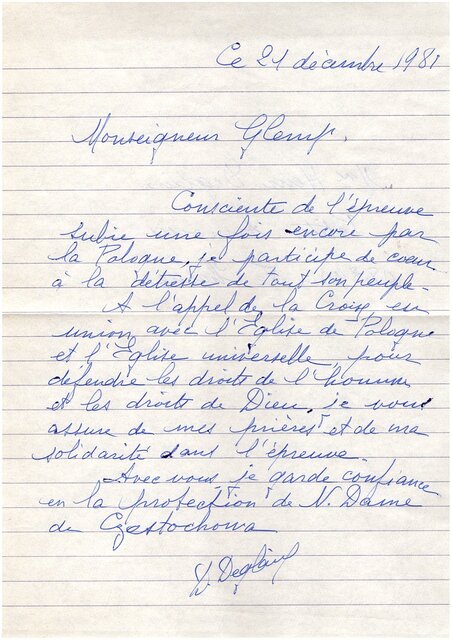 Ce 21 décembre 1981
Monseigneur Glemp.
Consciente de l'épreuve
subie une fois encore par
la Pologne, je participe de coeur
à la détresse de tout son peuple.
A l'appel de la Croix, en
union avec l'Église de Pologne
et l'Église universelle, pour
défendre les droits de l'homme
et les droits de Dieu, je vous
assure de mes prières et de ma
solidarité dans l'épreuve.
Avec vous je garde confiance
en la protection de N. Dame
de Częstochowa